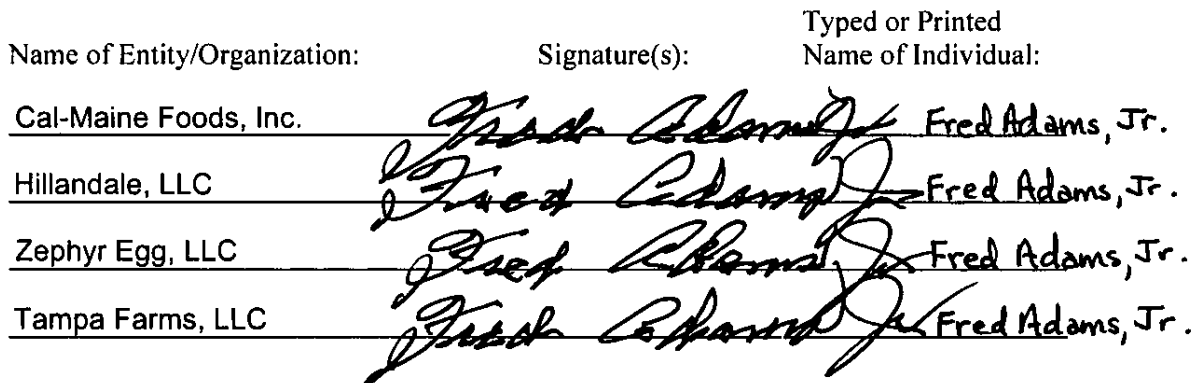 Typed or Printed
Name of Entity/Organization: Signature(s): Name of Individual:
Cal-Maine Foods, Inc. Fred Adams Jr Fred Adams, Jr.
Hillandale, LLC Fred Adams Jr Fred Adams, Jr.
Zephyr Egg, LLC Fred Adams Jr Fred Adams, Jr.
Tampa Farms, LLC Fred Adams Jr Fred Adams, Jr.